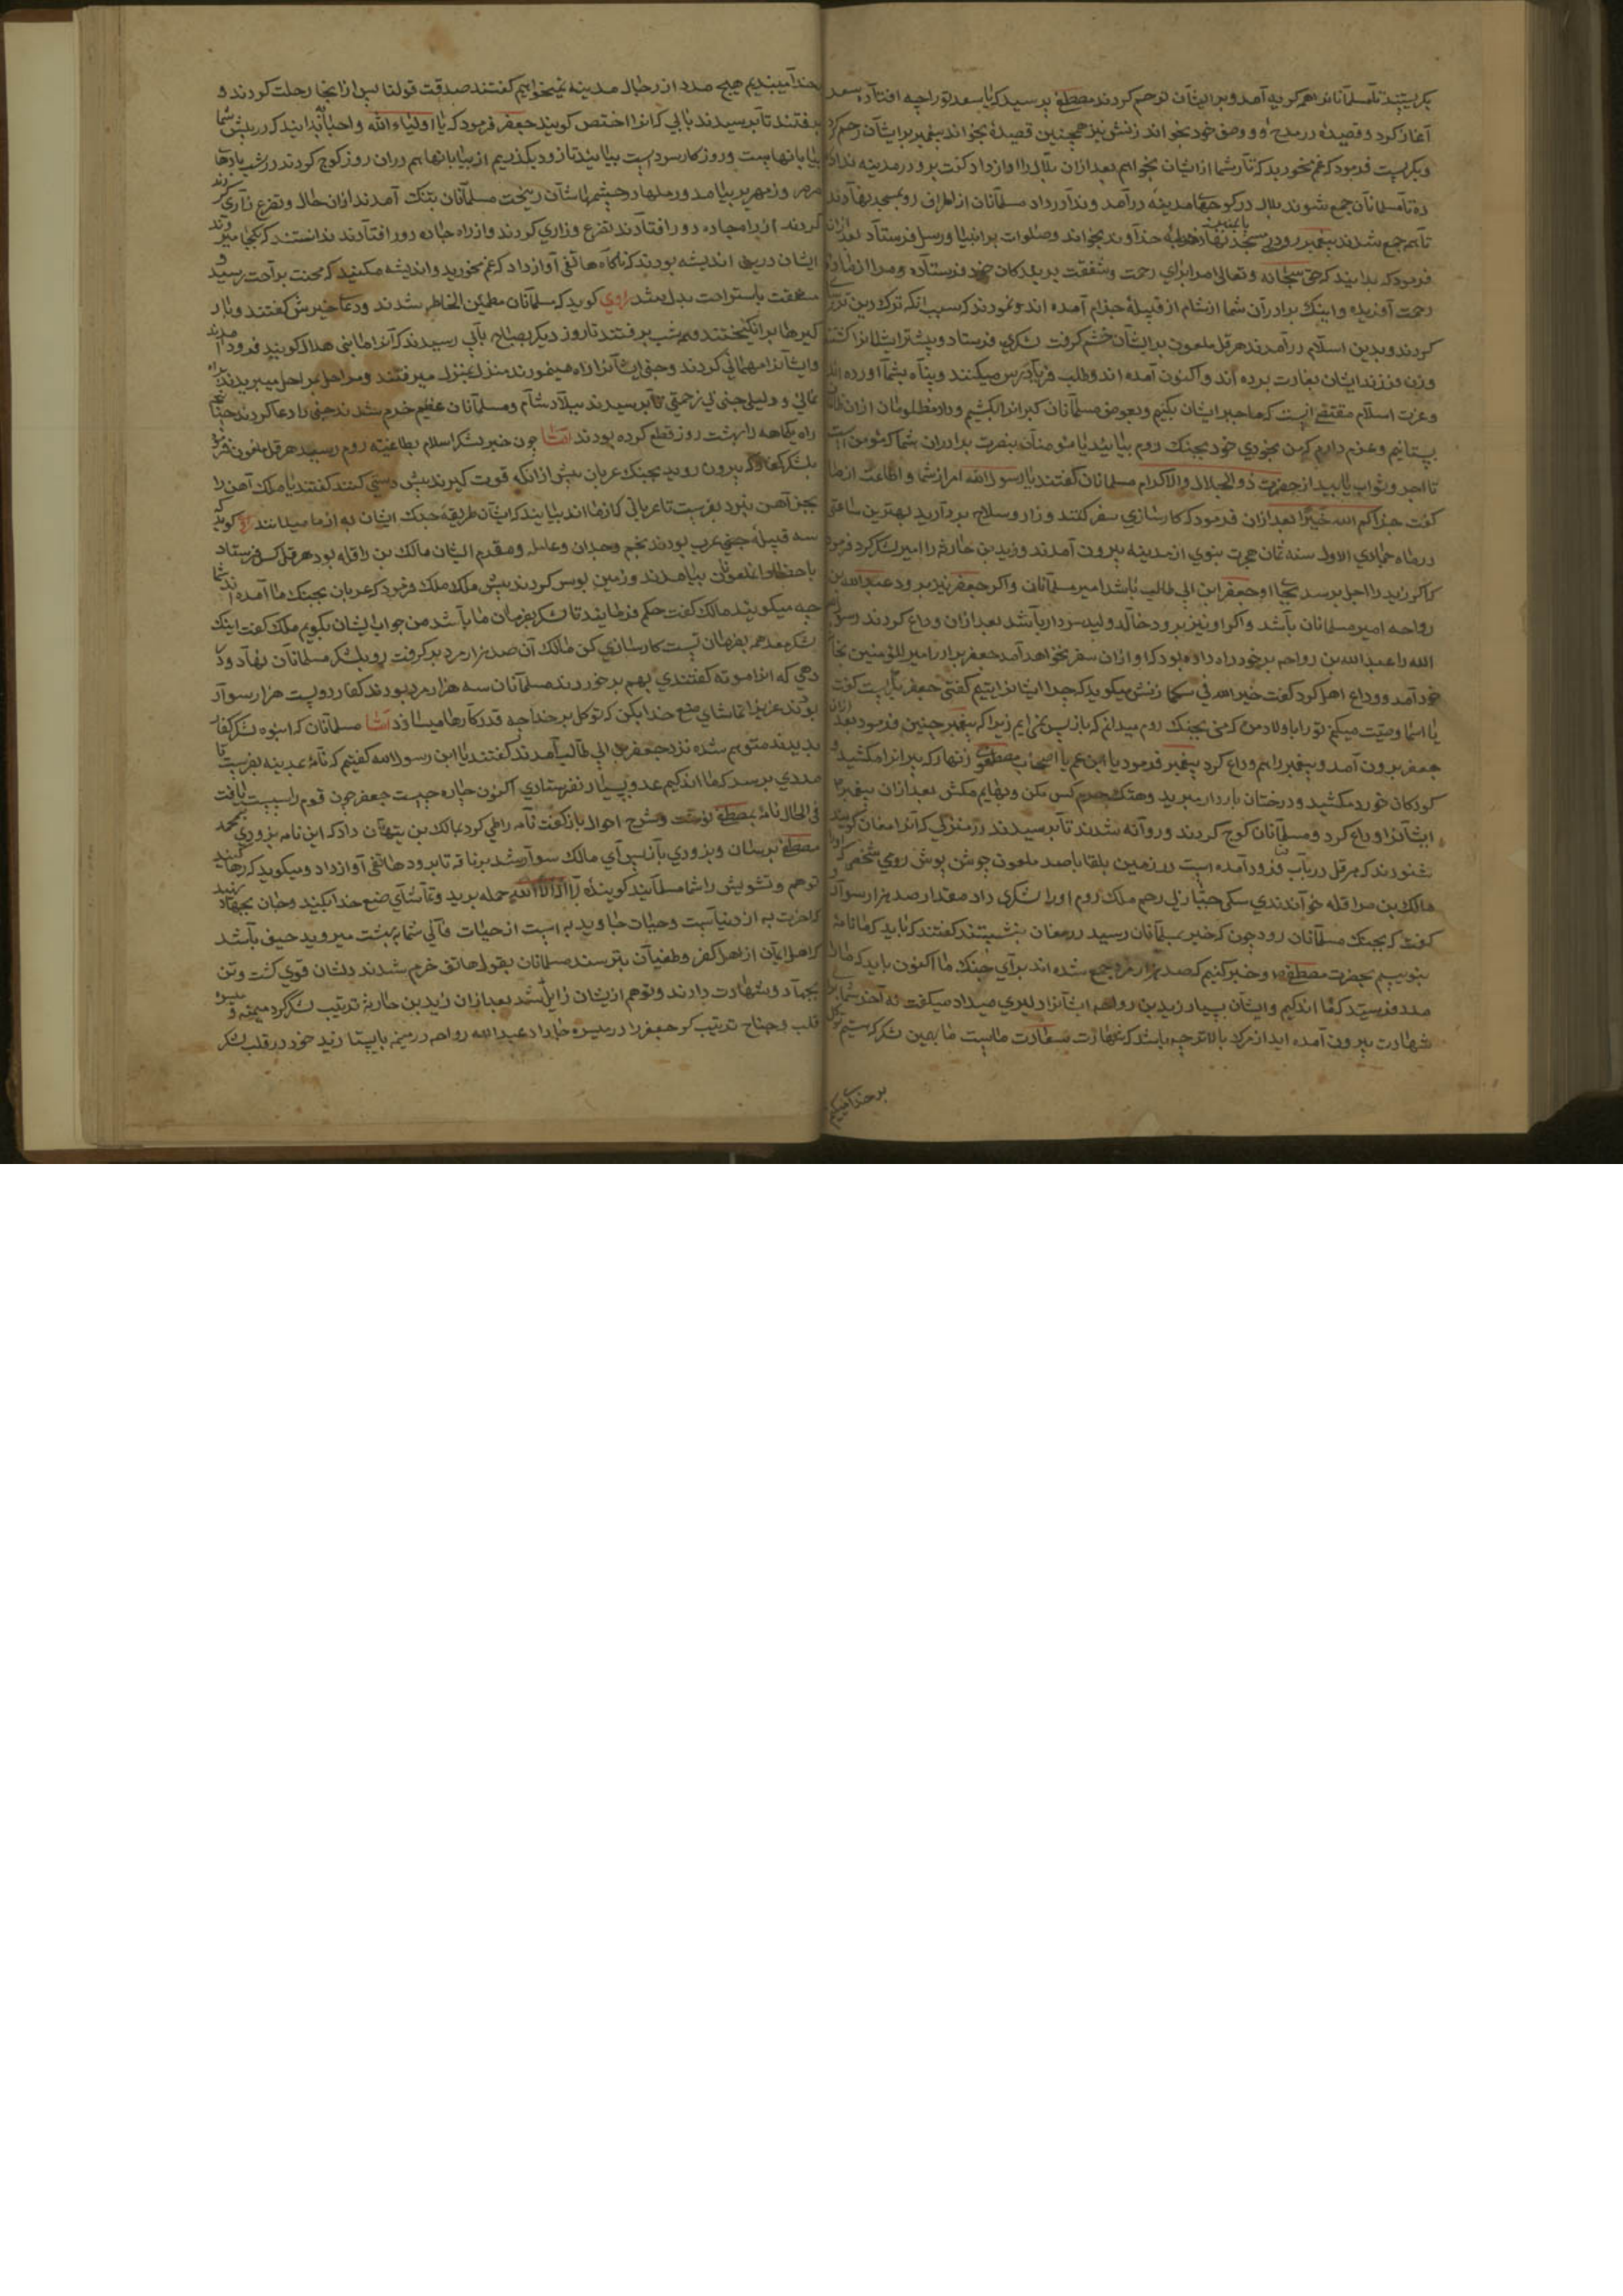 بگریستند تا مسلمانانرا هم گریه آمد و بر ایشان ترحم کردند مصطفی پرسید که یا سعد ترا چه افتاد سعد
آغاز کرد و قصیده در مدح او و وصف خود بخواند زنش نیز همچنین قصیدهٔ بخواند پیغمبر بر ایشان رحم کرد
و بگریست فرمود که غم مخورید که ثأر شما از ایشان بخواهم بعد ازان بلال را آواز داد گفت برو در مدینه ندا
ده تا مسلمانان جمع شوند بلال در کوچهای مدینه درآمد و ندا در داد مسلمانان از اطراف رو بمسجد نهادند
تا هم جمع شدند پیغمبر رو در مسجد نهاد خطبه خداوند بخواند و صلوات بر انبیا و رسل فرستاد بعد ازان
فرمود که بدانید که حق سبحانه و تعالی مرا برای رحمت و شفقت بر بندکان خود فرستاده و مرا از
رحمت آفریده و اینک برادران شما از شام از قبیلهٔ جذام آمده اند و نمودند که بسبب آنکه ترک دین ترسا
کردند و بدین اسلام درآمدند هرقل ملعون بر ایشان خشم گرفت لشکری فرستاد و بیشتر ایشانرا کشتند
وزن و فرزند ایشان بغارت برده اند و اکنون آمده اند و طلب فریادرس میکنند و پناه بشما آورده اند
و عزت اسلام مقتضی آنست که ما جبر ایشان بکنیم و بعوض مسلمانان کبرانرا بکشیم و داد مظلومان از ان
بستانیم و عزم دارم که من بخودی خود بجنک روم بیائید یا مؤمنان بنصرت برادران شما که مؤمن است
تا اجر و ثواب یابید از حضرت ذو الجلال والاکرام مسلمانان گفتند یا رسول الله امر از شما و اطاعت از ما
گفت جزاکم الله خیرا بعد ازان فرمود که کارسازی سفر کنند و زاد و سلاح بردارید بهترین ساعتی
در ماه جمادی الاول سنه ثمان هجرت نبوی از مدینه بیرون آمدند و زید بن حارثه را امیر لشکر کرد فرمود
که اکر زید را اجل برسد بجای او جعفر ابن ابی طالب باشد امیر مسلمانان و اکر جعفر نیز برود عبد الله بن
رواحه امیر مسلمانان باشد و اکر او نیز برود خالد ولید سردار باشد بعد ازان وداع کردند رسول
الله را عبد الله بن رواحه بر خود راه داده بود که او ازان سفر نخواهد آمد جعفر برادر امیر المؤمنین بخانه
خود آمد و وداع اهل کرد گفت خیر الله زنش میکوید که چرا ایشانرا یتیم کفتی جعفر بگریست گفت
یا اسما وصیت میکنم ترا با ولاد من که من بجنک روم میدانم که باز پس نمی آیم زیرا که پیغمبر چنین فرمود بعد ازان
جعفر بیرون آمد و پیغمبر را هم وداع کرد پیغمبر فرمود یا ابن عم یا اصحاب مصطفوی زنهار که پیرانرا مکشید و
کودکان خورد مکشید و درختان باردار مبرید و هتک حرم کس مکن و بهایم مکش بعد ازان پیغمبر
ایشانرا وداع کرد و مسلمانان کوچ کردند و روانه شدند تا برسیدند در منزلی که آنرا معان کویند
شنودند که هرقل در باب فرود آمده است در زمین بلقا با صد ملعون جوش پوش رومی شخصی که او را
مالک بن مراقله خواندندی سکی جبار بی رحم ملک روم او را لشکری داد مقدار صد هزار سوار
گفت که بجنک مسلمانان رود چون که خبر بمسلمانان رسید در معان بنشستند گفتند که باید که ما نامه
بنویسیم بحضرت مصطفی و خبر کنیم که صد هزار مرد جمع شده اند برای جنک ما اکنون باید که ما را
مدد فرستید که ما اندکیم و ایشان بسیار زید بن رواحه ایشانرا دلیری میداد میکفت نه آخر شما برای
شهادت بیرون آمده اید از مرک بالاتر چه باشد که شهادت سعادت ماست ما بهمین لشکر که هستیم توکل
بر خدا میکنیم
بخدا میبندیم هیچ مدد از رجال مدینه نمیخواهیم گفتند صدقت قولنا پس از انجا رحلت کردند و
برفتند تا برسیدند بآبی که آنرا اختص کویند جعفر فرمود که یا اولیاء الله و احبائه بدانید که در پیش شما
بیابانها است و روز کار سرد است بیائید تا زود بگذریم از بیابانها هم دران روز کوچ کردند در شب بادها
صرصر و زمهریر بیامد و رملها در چشمهاشان ریخت مسلمانان بتنک آمدند ازان حال و تضرع زاری کردند
کردند از راه جاده دور افتادند تضرع و زاری کردند و از راه جاده دور افتادند ندانستند که بکجا میروند
ایشان درین اندیشه بودند که ناکاه هاتفی آواز داد که غم مخورید و اندیشه مکنید که محنت براحت رسید و
مشقت باستراحت بدل شد راوی کوید که مسلمانان مطمئن الخاطر شدند و دعا خیرش گفتند و بار
کیرها برانکیختند و هم شب برفتند تا روز دیکر صباح بآبی رسیدند که آنرا ما بنی هلال کویند فرود آمدند
و ایشانرا مهمانی کردند و جنی ایشانرا راه مینمود بمنزل بمنزل میرفتند و مراحل بمراحل میبریدند براه
عالی و دلیل جنی بی زحمتی تا برسیدند ببلاد شام و مسلمانان عظیم خرم شدند جنی را دعا کردند چنانچه
راه یکماهه را بهشت روز قطع کرده بودند امّا چون خبر لشکر اسلام بطاغیه روم رسید هرقل ملعون فرمود
بلشکر کفار که بیرون روید بجنک عربان پیش از انکه قوت کیرند پیش دستی کنند گفتند یا ملک آهن را
بجز آهن نبرد بفرست تا عربانی که از ما اند بیایند که ایشان طریقه جنک ایشان به از ما میدانند راوی کوید که
سه قبیله جنی عرب بودند لخم و جدان و عامله و مقدم ایشان مالک بن راقله بود هرقل کس فرستاد
باحضار ملعونان بیامدند و زمین بوس کردند پیش ملک ملک فرمود که عربان بجنک ما آمده اند شما
چه میکویید مالک گفت حکم فرمایند تا لشکر بفرمان ما باشد من جواب ایشان بکویم ملک گفت اینک
لشکر هم بفرمان تست کارسازی کن مالک آن صد هزار مرد برگرفت رو بلشکر مسلمانان نهاد و در
دهی که آنرا موته گفتندی بهم برخوردند مسلمانان سه هزار مرد بودند کفار دویست هزار سوار
بودند عزیز اتماشای صنع خدا بکن که توکل بر خدا چه قدر کارها میسازد امّا مسلمانان که انبوه لشکر کفار
بدیدند متوهم شده نزد جعفر بن ابی طالب آمدند گفتند یا ابن رسول الله کفتیم که نامه بمدینه بفرست تا
مددی برسد که ما اندکیم عدو بسیار نفرستادی اکنون چاره چیست جعفر چون قوم را سست یافت
فی الحال نامهٔ بمصطفی نوشت و شرح احوال باز گفت نامه را طی کرد بمالک بن تیهان داد که این نامه بزودی بمحمد
مصطفی برسان و بزودی باز پس آی مالک سوار شد بر ناقه تا برود هاتفی آواز داد و میکوید که رها کنید
توهم و تشویش را شما مسلمانید کوینده لا اله الا الله حمله برید و تماشای صنع خدا بکنید و جان بجهاد نهید
که آخرت به از دنیاست و حیات جاوید به است از حیات فانی شما بهشت میروید حیف باشد
که اهل ایمان از اهل کفر و طغیان بترسند مسلمانان بقول هاتف خرم شدند دلشان قوی گشت و تن
بجهاد و شهادت دادند و توهم از یشان زایل شد بعد ازان زید بن حارثه ترتیب لشکر کرد میمنه و میسره
قلب و جناح ترتیب کرد جعفر را در میسره جا داد عبد الله رواحه در میمنه بایستاد زید خود در قلب لشکر